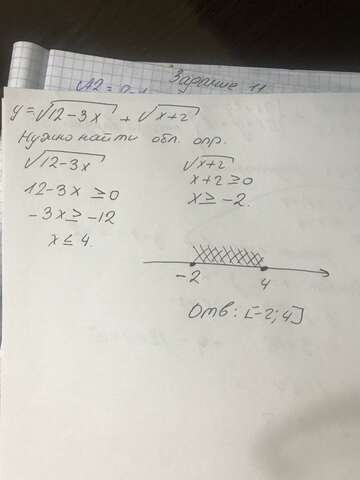 Задание 11
y = √12-3x + √x+2
Нужно найти обл. опр.
√12-3x
12-3x ≥0
-3x≥ -12
x ≤ 4.
√x+2
x+2 ≥0
x≥ -2.
-2 4
Отв: [-2; 4]